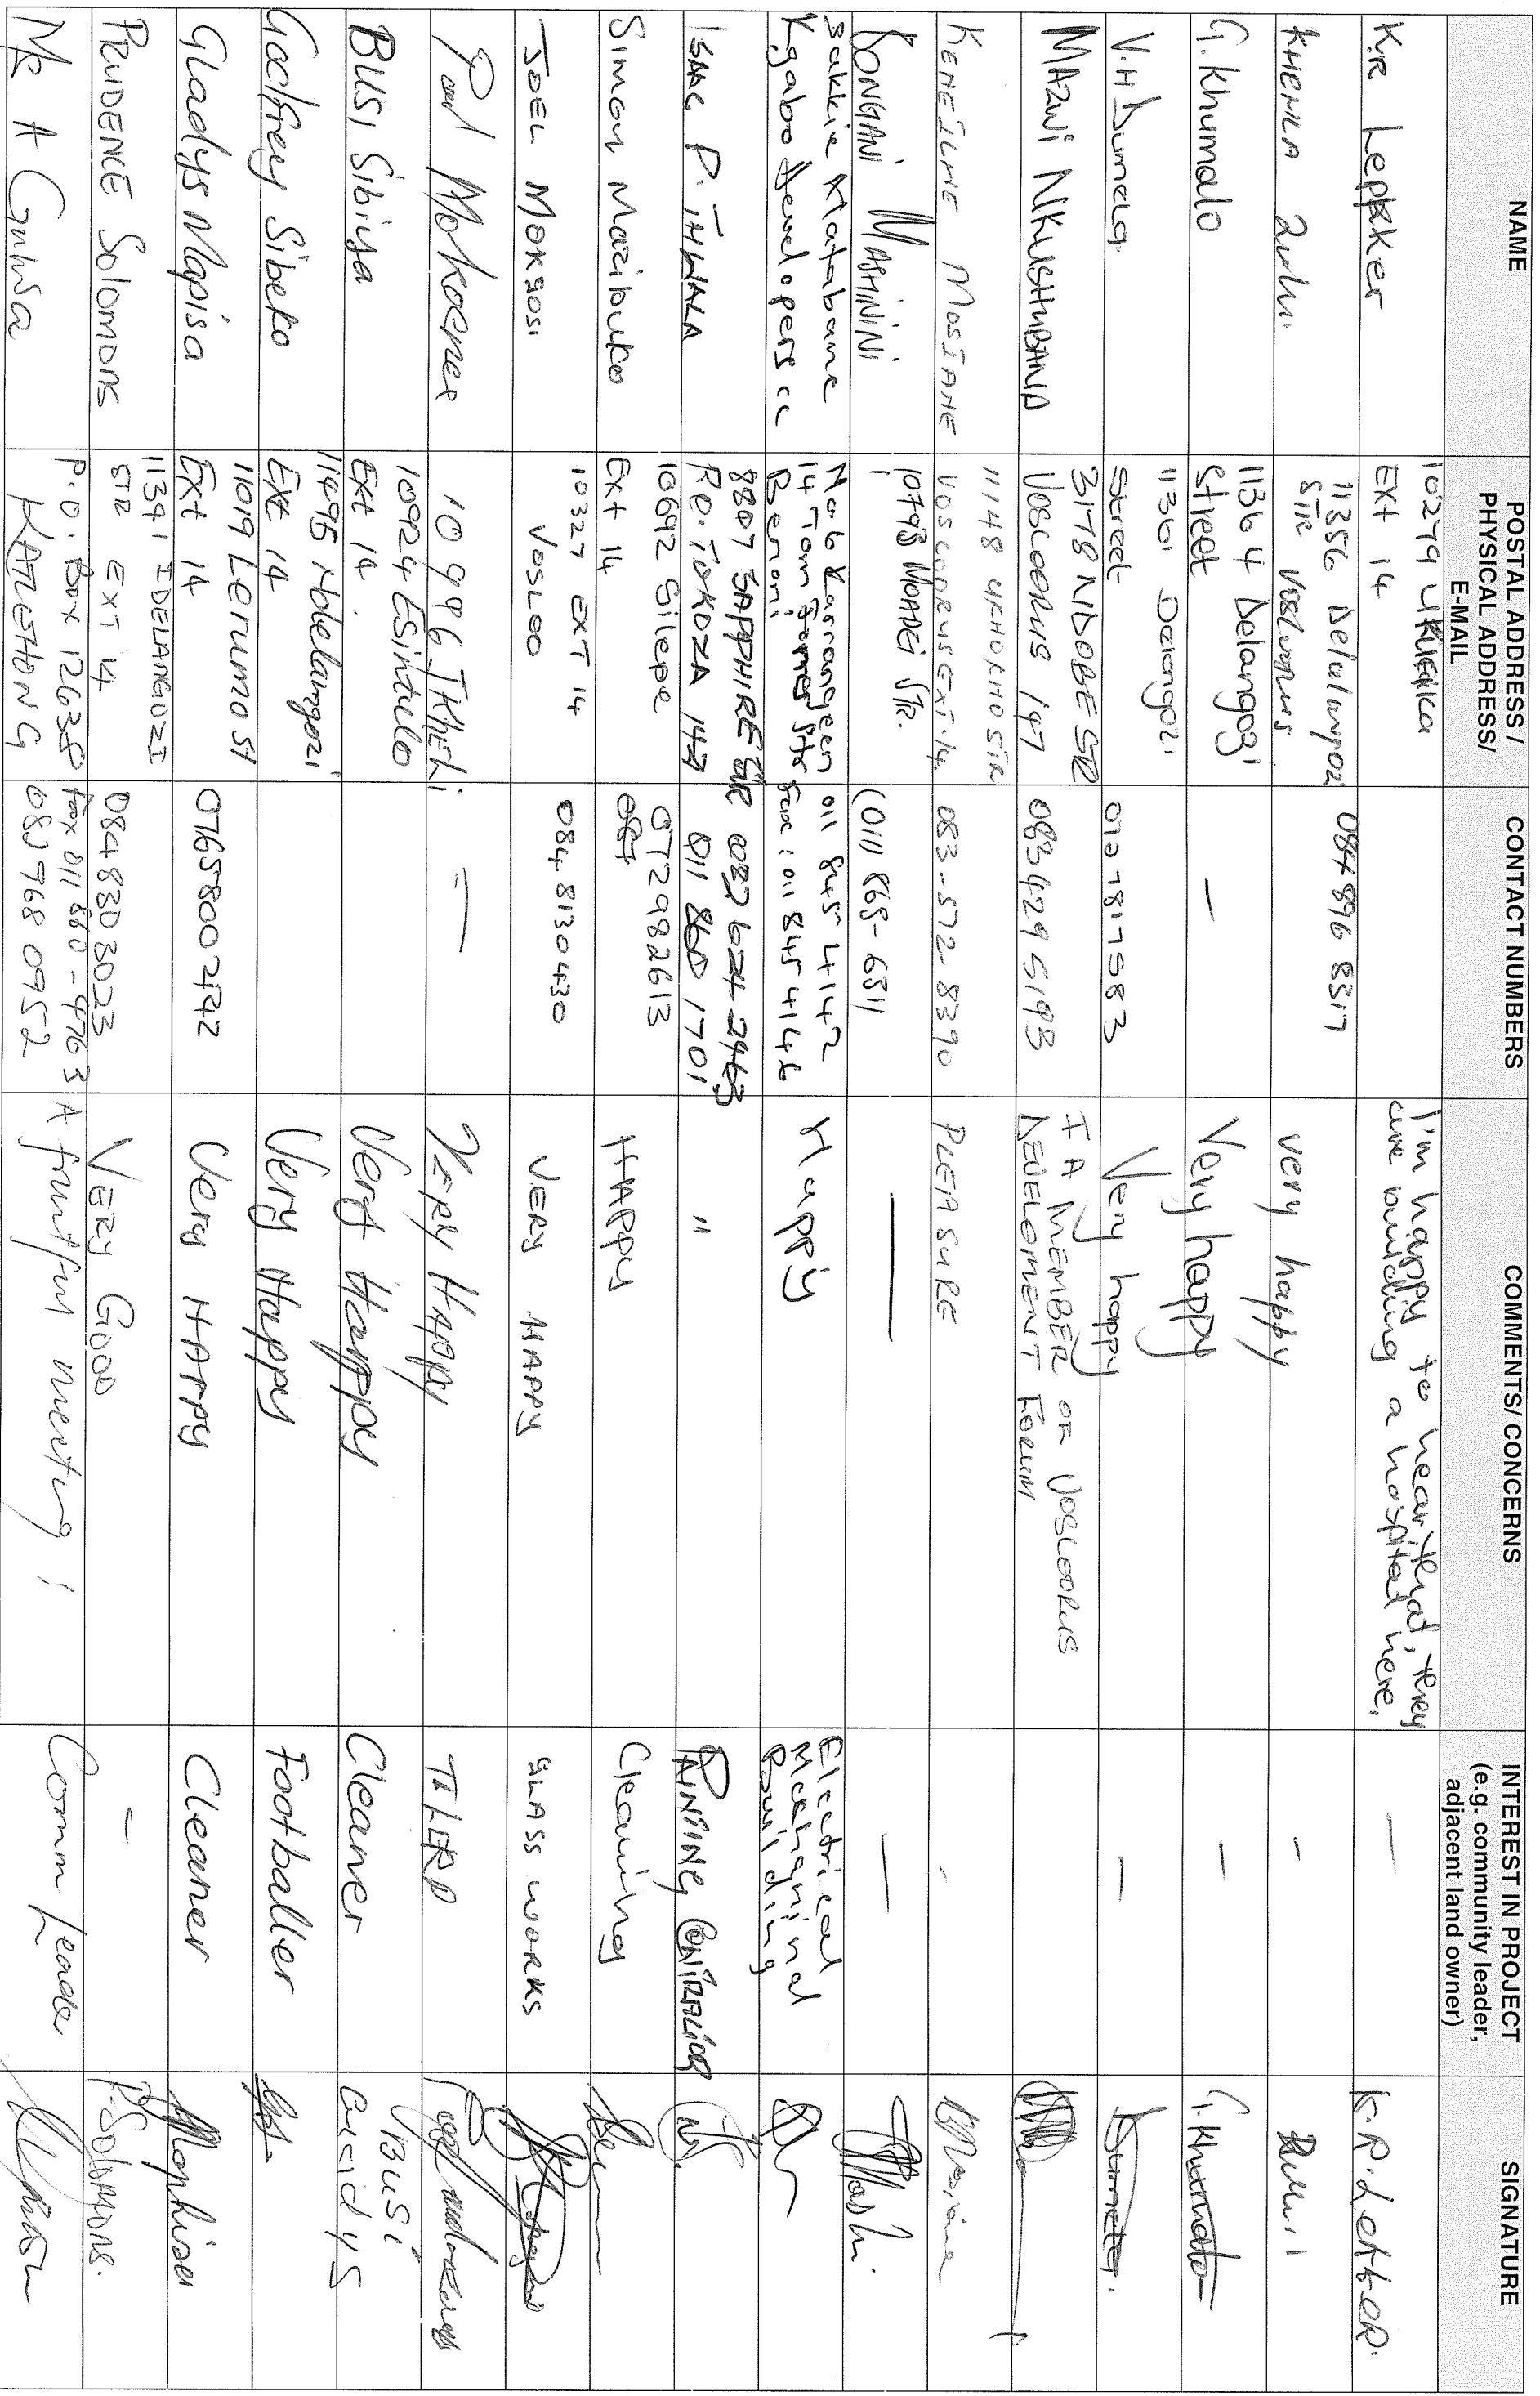 NAME
POSTAL ADDRESS /
PHYSICAL ADDRESS/
E-MAIL
CONTACT NUMBERS
COMMENTS/ CONCERNS
INTEREST IN PROJECT
(e.g. community leader,
adjacent land owner)
SIGNATURE
K.R Lepkker
10279
EXT 14
I'm happy to hear that, they
are building a hospital here,
—
KHEMLA Zulu
11356
STR Vosloorus
084 896 8317
very happy
-
G. Khumalo
11364 Delangozi
Street
—
Very happy
—
G. Khumalo
V.H Dumela
11361 Delangozi
Street
0727817583
Very happy
—
Dumela.
MAZWI NKUSHUBANA
3178 NDOBE STR
VOSLOORUS 147
083 429 5193
I A MEMBER OF VOSLOORUS
DEVELOMENT FORUM
KEHEILWE MOSIANE
11148 UKHOKHO STR
VOSLOORUS EXT.14
083-572-8390
PLEASURE
-
BONGANI MASHININI
10798 MOAPEI STR.
(011) 865-6511
—
—
Sakkie Matabane
Kgabo Developers cc
No 6 Karrangeen
14 Tom Jones Str
Benoni
011 845 4142
fax: 011 845 4146
Happy
Electrical
Mechaninal
Building
ISAAC P. THWALA
8807 SAPPHIRE STR
Re. TOKOZA 142
082 624-2463
011 860 1701
"
PAINTING CONTRACTOR
Simon Mazibuko
10692 Silepe
Ext 14
072982613
HAPPY
Cleaning
JOEL MOKGOSI
10327 EXT 14
VOSLOO
084 8130430
VERY HAPPY
GLASS WORKS
Paul Mokoena
10996
—
VERY HAPPY
TILER
BUSI Sibiya
10924 ESintulo
Ext 14.
Very Happy
Cleaner
BUSI
Godfrey Sibeko
11495 Ndelangozi
Ext 14
Very Happy
Footballer
Gladys Mapisa
11019 Lerumo St
Ext 14
0765800742
Very HAPPY
Cleaner
PRUDENCE Solomons
11391 IDELANGOZI
STR EXT 14
0848303023
VERY GOOD
-
P. Solomons.
MR A Gulwa
P.O. Box 12638
KATLEHONG
fax 011 860-4763
083 968 0952
A fruitful meeting!
Comm Leader